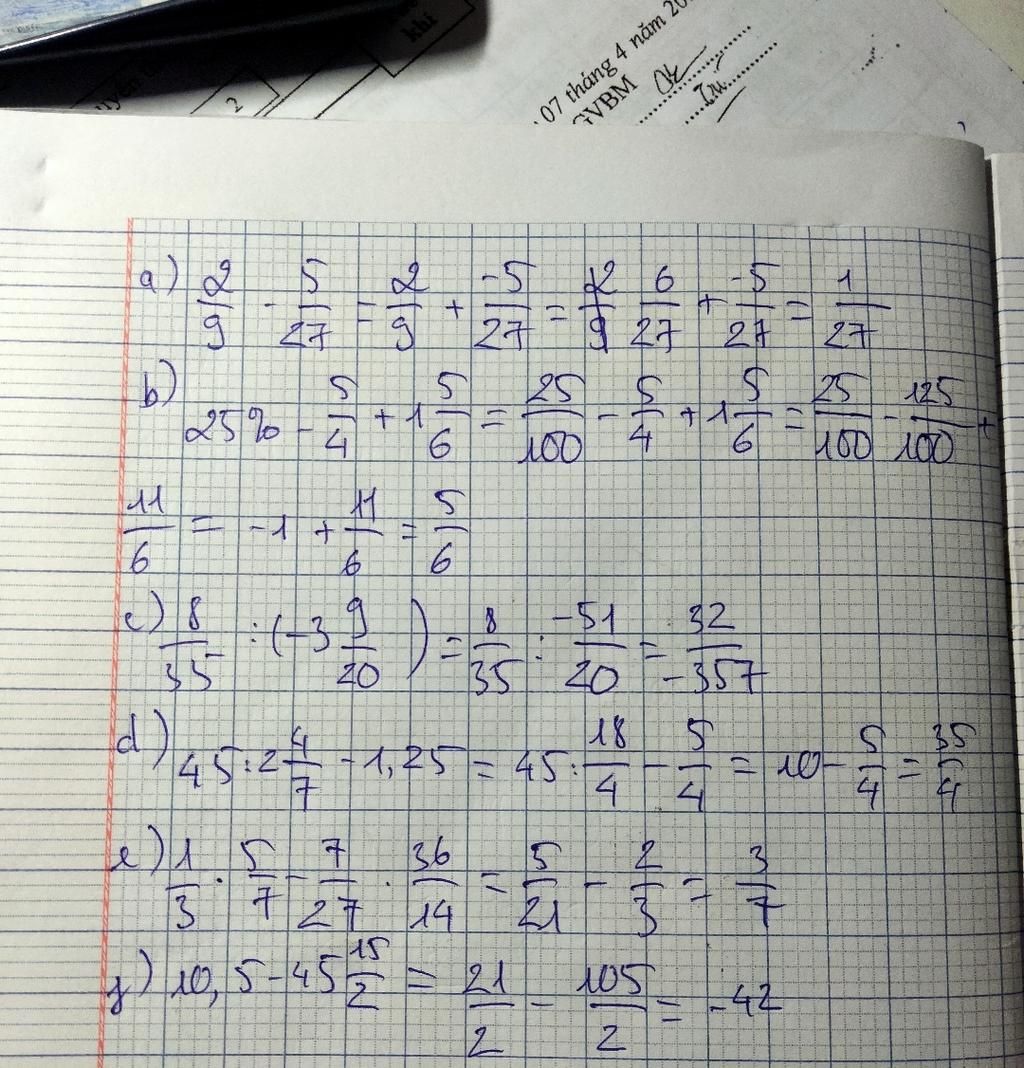 khí
2
07 tháng 4 năm 20
GVBM
a) 2/9 - 5/27 = 2/9 + -5/27 = 6/27 + -5/27 = 1/27
b) 25% - 5/4 + 1 5/6 = 25/100 - 5/4 + 1 5/6 = 25/100 - 125/100 +
11/6 = -1 + 11/6 = 5/6
c) 8/35 : (-3 9/20) = 8/35 : -51/20 = 32/-357
d) 45 : 2 4/7 - 1,25 = 45 : 18/4 - 5/4 = 10 - 5/4 = 35/4
e) 1/3 . 5/7 - 7/27 . 36/14 = 5/21 - 2/3 = 3/7
f) 10,5 - 45 15/2 = 21/2 - 105/2 = -42